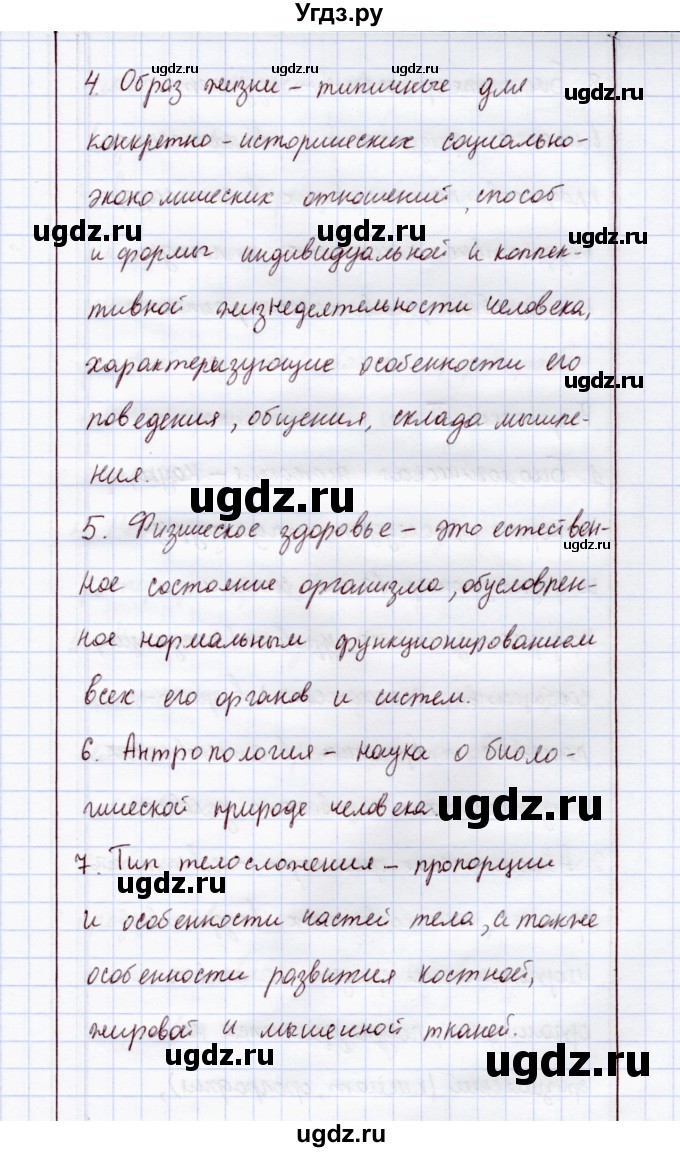 Угдз.ру
4. Образ жизни – типичные для
конкретно-исторических социально-
экономических отношений, способ
и формы индивидуальной и коллек-
тивной жизнедеятельности человека,
характеризующие особенности его
поведения, общения, склада мышле-
ния.
5. Физическое здоровье – это естествен-
ное состояние организма, обусловлен-
ное нормальным функционированием
всех его органов и систем.
6. Антропология – наука о биоло-
гической природе человека.
7. Тип телосложения – пропорции
и особенности частей тела, а также
особенности развития костной,
жировой и мышечной тканей.
ugdz.ru